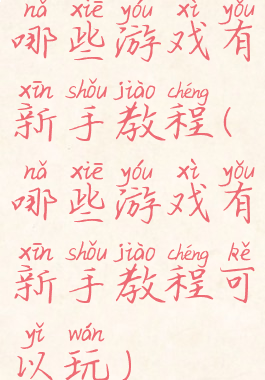 nǎ xiē yóu xì yǒu
哪些游戏有
xīn shǒu jiào chéng
新手教程(
nǎ xiē yóu xì yǒu
哪些游戏有
xīn shǒu jiào chéng kě
新手教程可
yǐ wán
以玩)